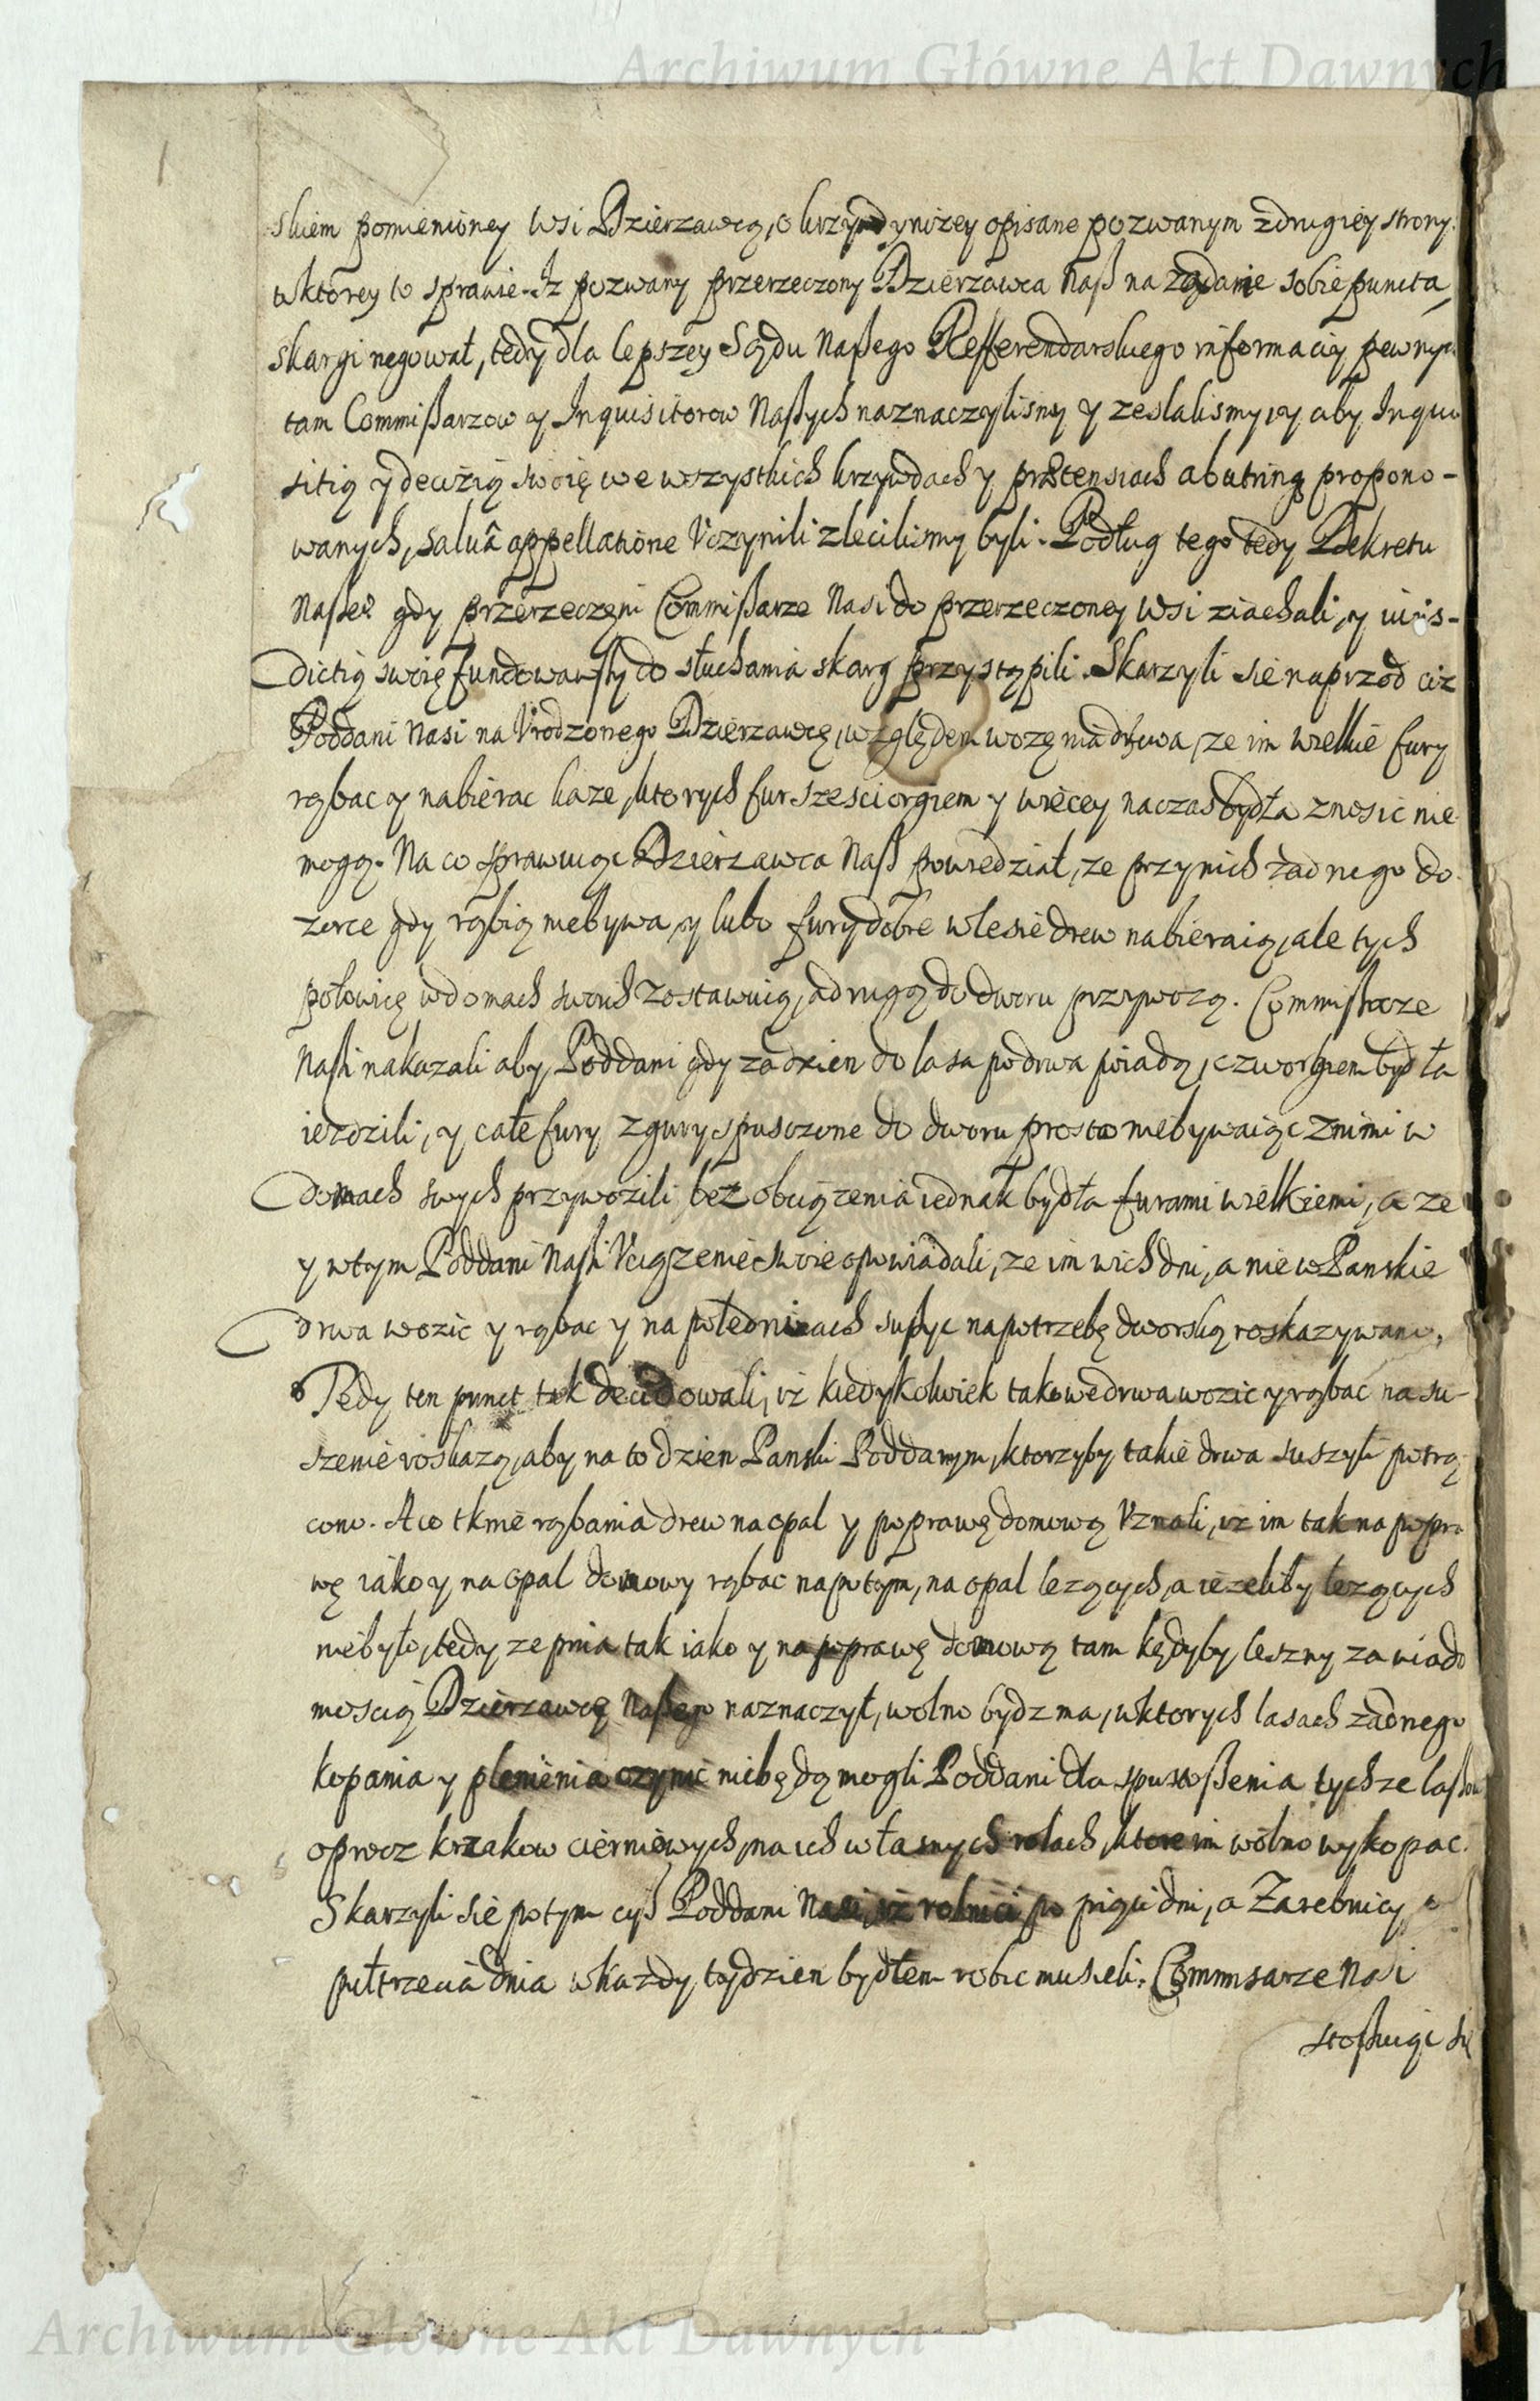 Archiwum Główne Akt Dawnych
skiem pomienioney wsi Dzierzawcą, o krzywdy nizey opisane pozwanym z drugiey strony.
w ktorey to sprawie. Iz pozwany przerzeczony Dzierzawca Naß na zadanie sobie puncta
skargi negował, tedy dla lepszey Sądu Naßego Refferendarskiego informaciy pewnych
tam Commißarzow y Inquisitorow Naßych naznaczylismy y zeslalismy, y aby Inqui
sitią y decizią swoię we wszystkich krzywdach y prætensiach ab utrinq propono-
wanych, salua appellatione Vczynili zlecilismy byli. Podług tego tedy Dekretu
Naßeo gdy przerzeczeni Commißarze Nasi do przerzeczoney wsi ziachali, y iuris-
dictią swoię fundowawßy do słuchania skarg przystąpili. Skarzyli sie naprzod ciz
Poddani Nasi na Vrodzonego Dzierzawcę, względem wozenia drzwa, ze im wielkie fury
rąbac y nabierac kaze, ktorych fur szesciorgiem y więcey na czas bydła znosic nie
mogą. Na co sprawuiąc Dzierzawca Naß powiedział, ze przy nich zadnego do
zorce gdy rąbią niebywa, y lubo fury dobre w lesie drew nabieraią, ale tych
połowicę w domach swoich zostawuią, a drugą do dworu przywozą. Commißarze
Naßi nakazali aby Poddani gdy za dzien do lasa po drwa poiadą, czworgiem bydła
iezdzili, y całe fury z gury spuszczone do dworu prosto niebywaiąc z nimi w
domach swych przywozili bez obciązenia iednak bydła furami wielkiemi, a ze
y w tym Poddani Naßi Vciązenie swoie opowiadali, ze im w ich dni, a nie w Panskie
drwa wozic y rąbac y na połednicach sußyc na potrzebę dworską roskazywano,
Tedy ten punct tak decidowali, iz kiedykolwiek takowe drwa wozic y rąbac na su-
szenie roskazą, aby na to dzien Panski Poddanym, ktorzyby takie drwa suszyli potrą
cono. A co tknie rąbania drew na opal y poprawę domową Vznali, iz im tak na popra
wę iako y na opal domowy rąbac na potym, na opal lezących, a iezeliby lezących
niebyło, tedy ze pnia tak iako y na poprawę domową tam kędyby lesny za wiado
moscią Dzierzawcę Naßego naznaczył, wolno bydz ma, w ktorych lasach zadnego
kopania y plenienia czynic niebędą mogli Poddani dla spustoßenia tychze lasow
oprocz krzakow cierniowych, na ich własnych rolach, ktore im wolno wykopac.
Skarzyli sie potym cyß Poddani Nasi, iz rolnici po pięci dni, a Zarebnicy
pułtrzecia dnia w kazdy tydzien bydłem robic musieli. Commisarze Nasi
stosuiąc się
Archiwum Główne Akt Dawnych